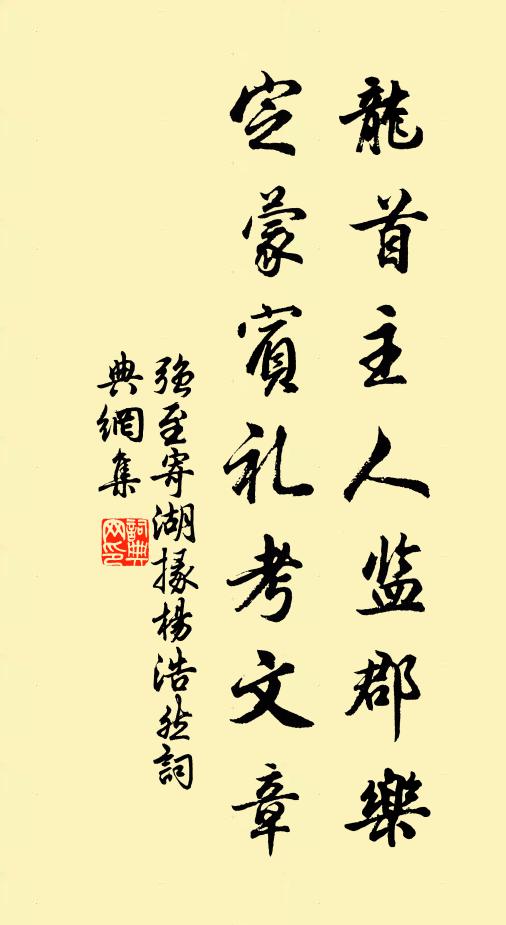 龍首主人监郡樂
定蒙賓礼考文章
强至寄湖掾楊浩然詞
典網集
詞典网印